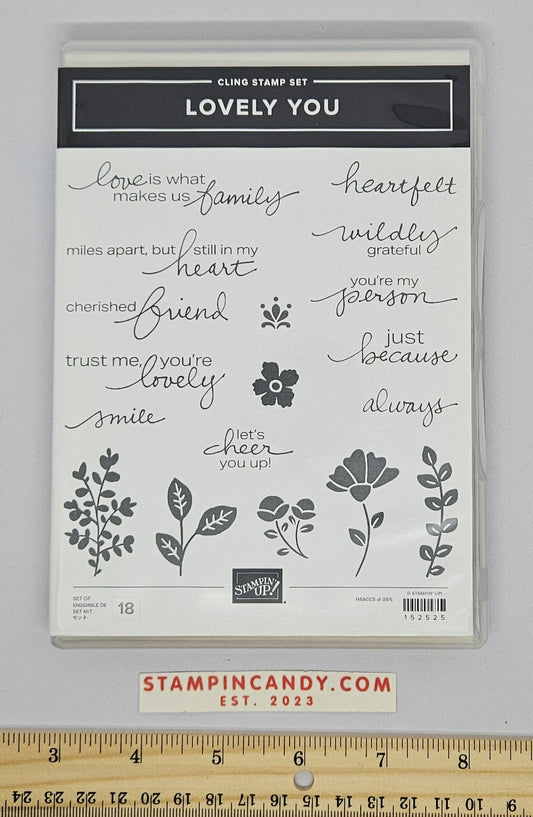 CLING STAMP SET
LOVELY YOU
love is what
makes us family
heartfelt
miles apart, but still in my
heart
wildly
grateful
cherished friend
you're my
person
trust me, you're
lovely
just
because
smile
always
let's
cheer
you up!
STAMPIN' UP!®
SET OF
ENSEMBLE DE
SET MIT
セット
18
IMAGES @ 95%
© STAMPIN' UP!
152525
STAMPINCANDY.COM
EST. 2023
3 4 5 6 7 8
24 23 22 21 20 19 18 17 16 15 14 13 12 11 10 9